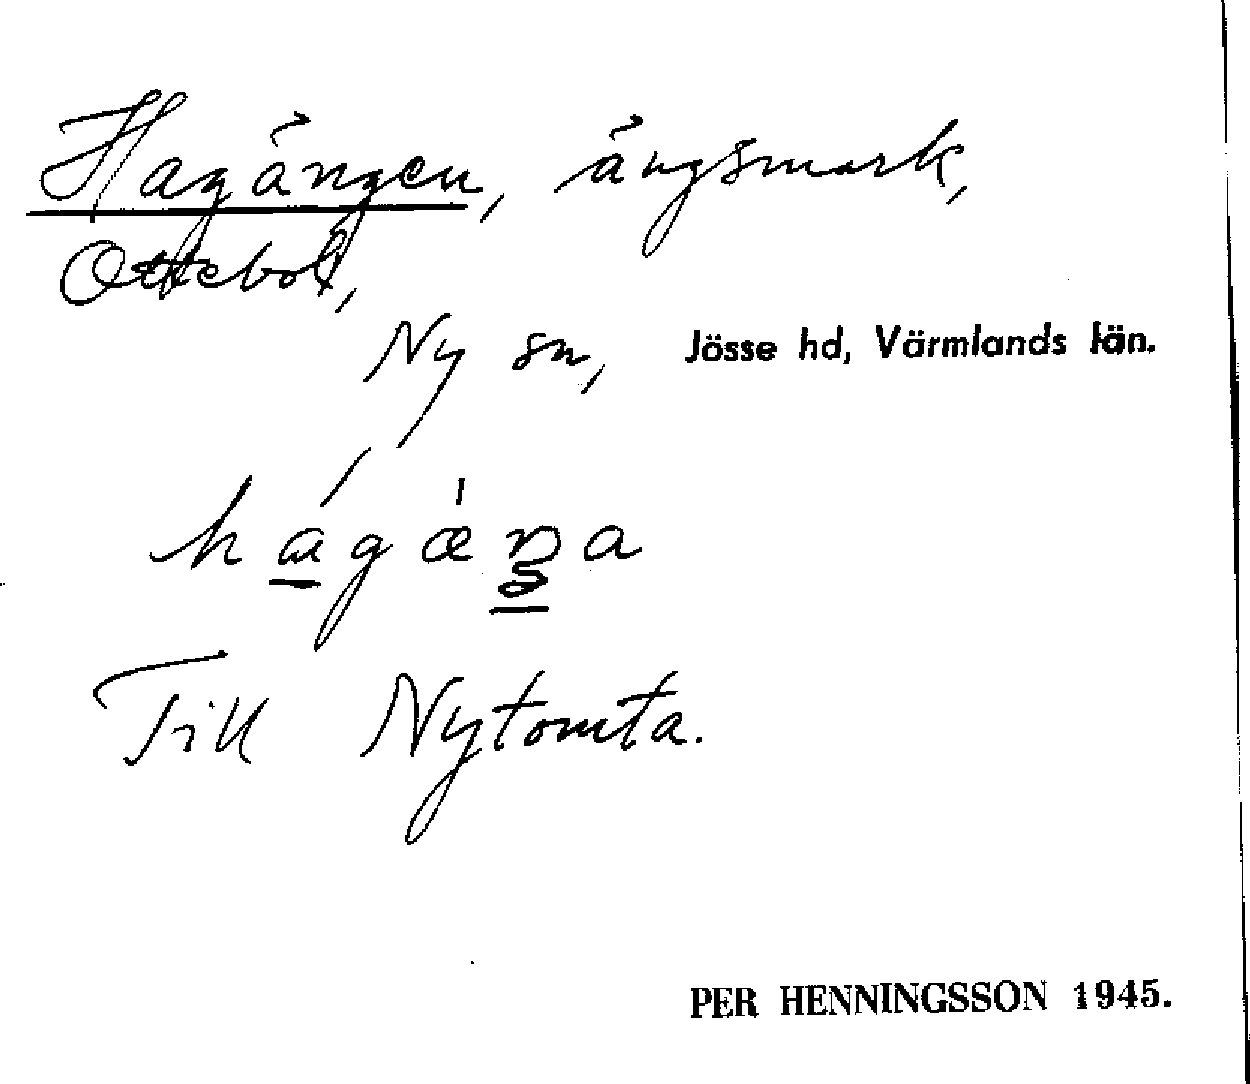 Hagängen, ängsmark,
Ottebol,
Ny sn, Jösse hd, Värmlands län.
Till Nytomta.
PER HENNINGSSON 1945.